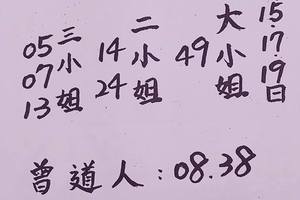 15.17.19日
大小姐
49
二小姐
14
24
三小姐
05
07
13
曾道人:08.38